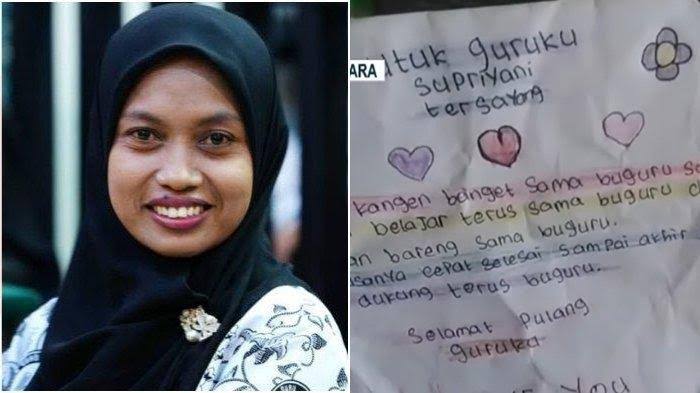 ARA
untuk guruku
supriyani
tersayang
kangen banget sama buguru
belajar terus sama buguru
bareng sama buguru.
cepat selesai sampai akhir
dukung terus buguru.
Selamat Pulang
guruku
You